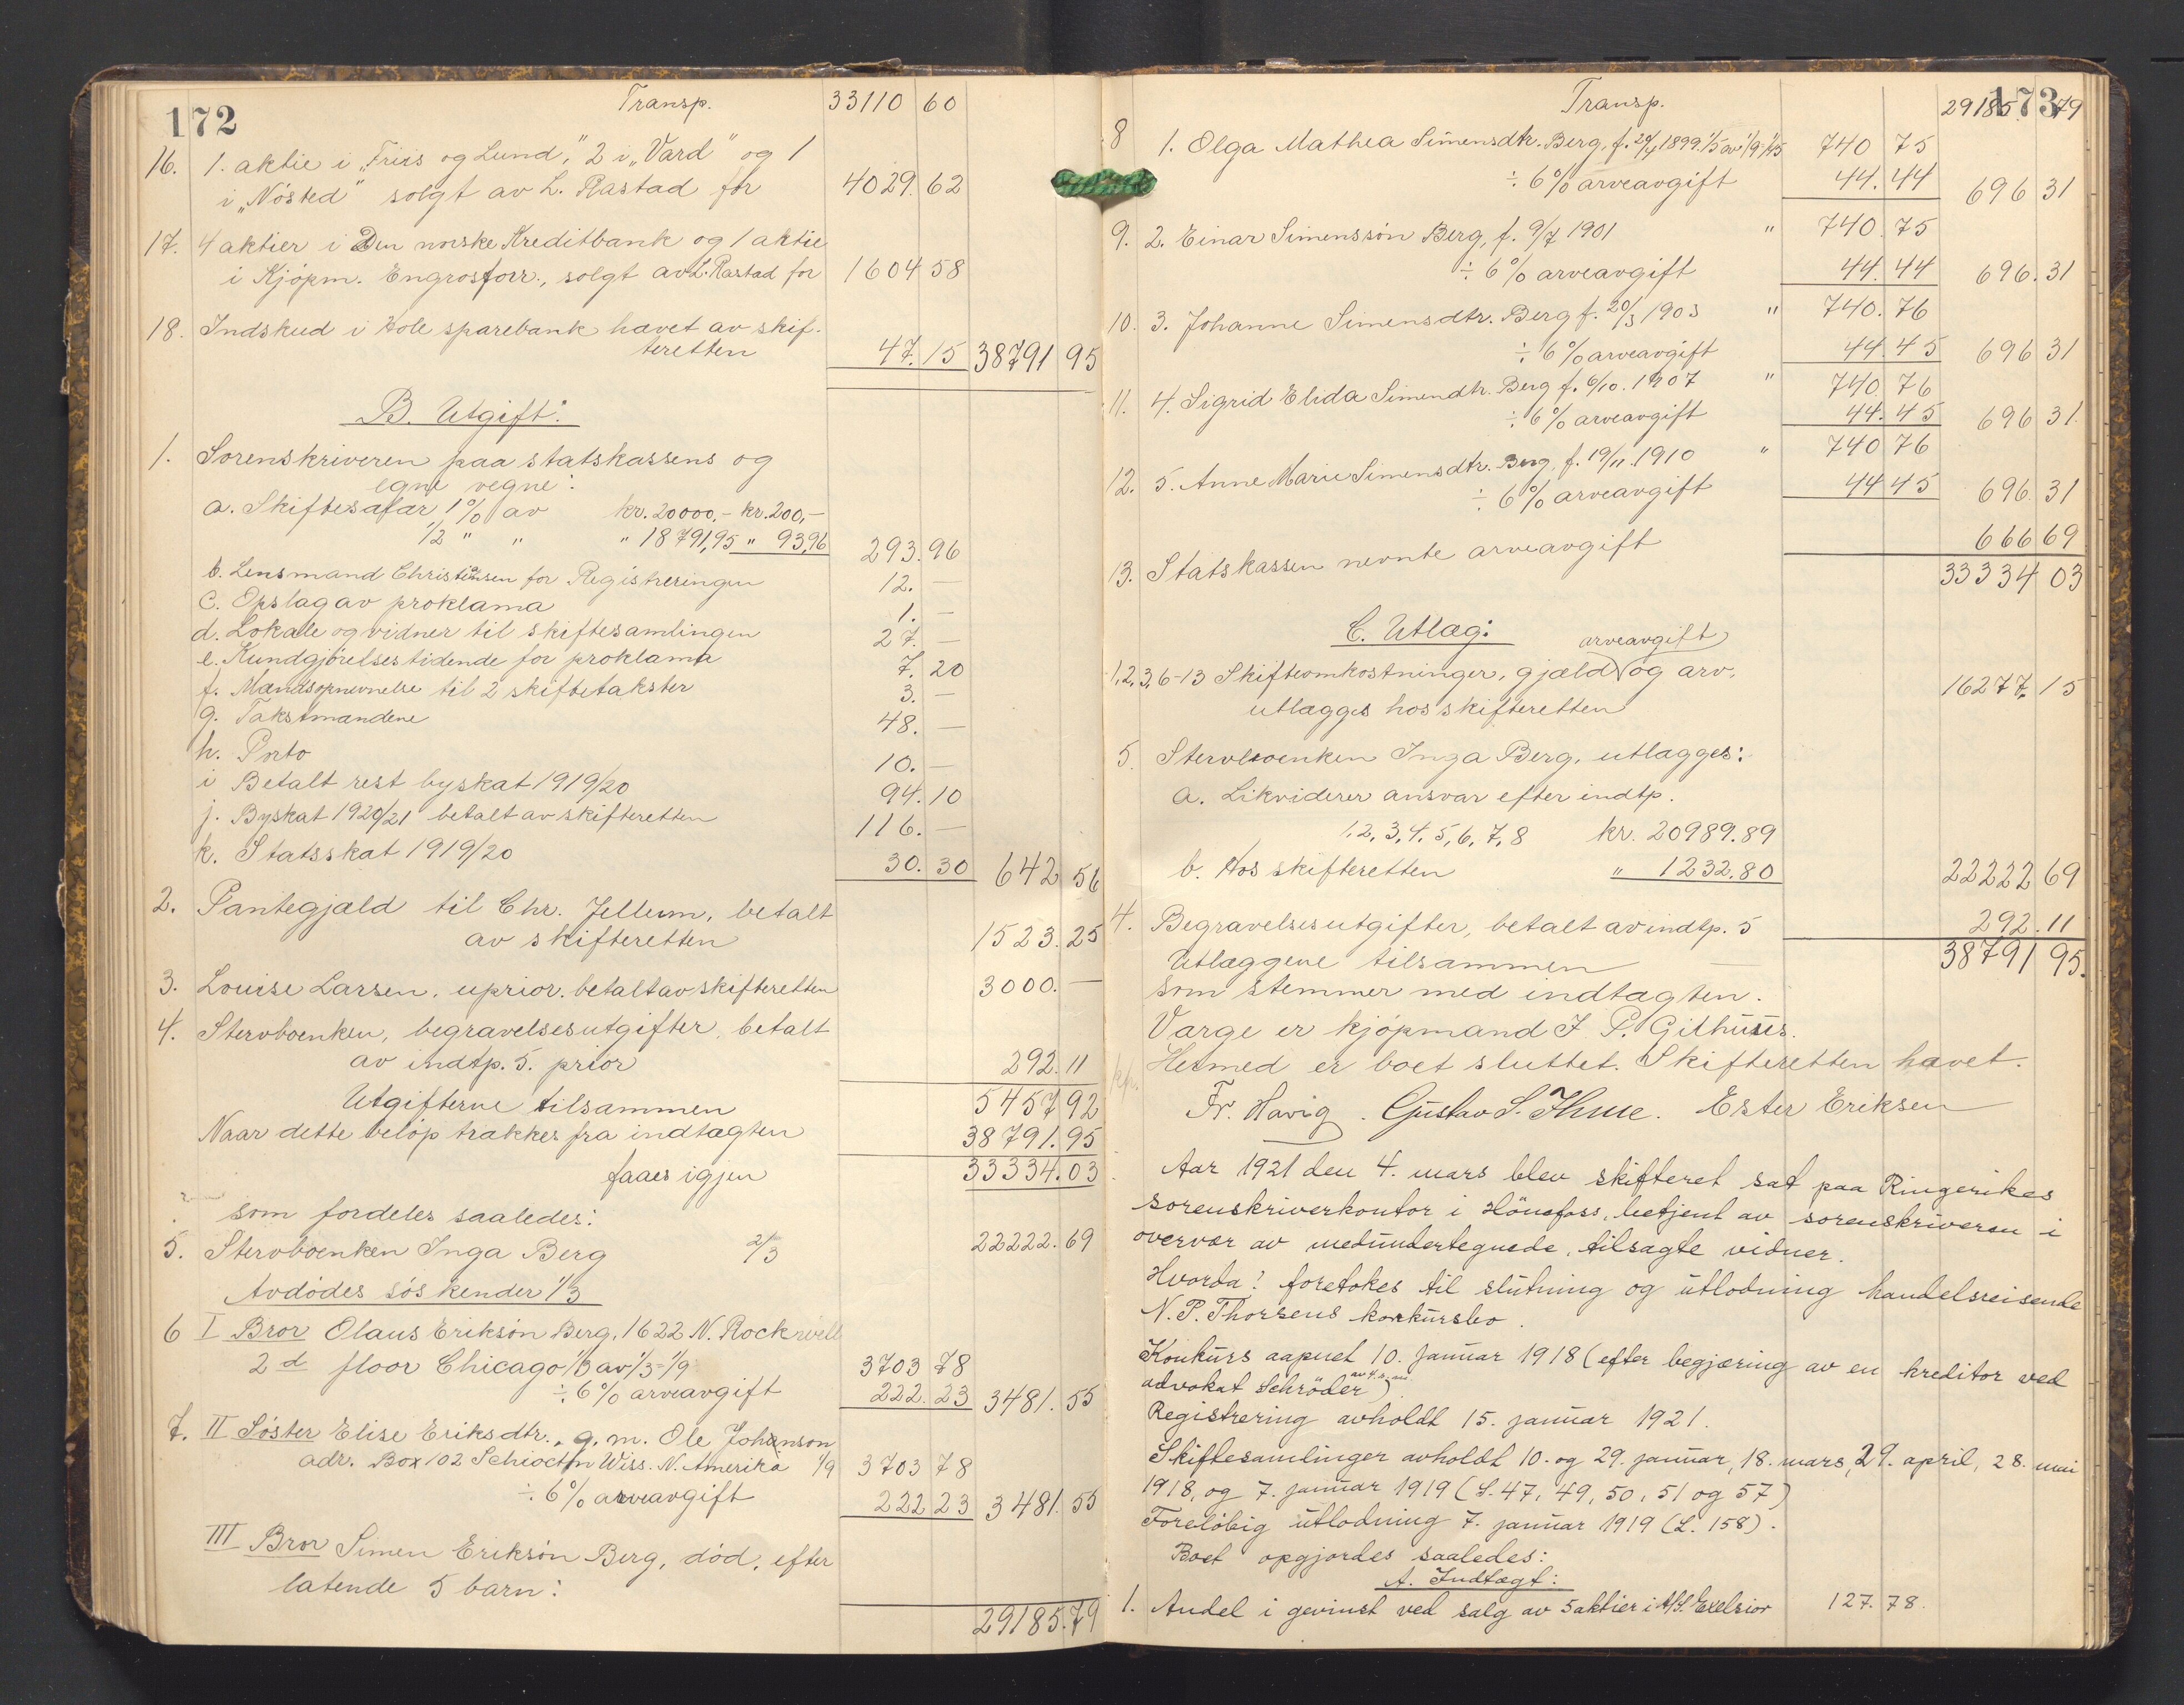 172
Transp. 33110 60
16. 1. aktie i „Friis og Lund," 2 i „Vard" og 1
i „Nösted" solgt av L. Rastad for 4029. 62
17. 4 aktier i Den norske Kreditbank og 1 aktie
i Kjöpm. Engrosforr., solgt av L. Rastad for 1604 58
18. Indskud i Hole sparebank hævet av skif-
teretten 47. 15 38791 95
B. Utgift:
1. Sorenskriveren paa statskassens og
egne vegne:
a. Skiftesafær 1% av kr. 20000,- kr. 200,-
1/2 " " " 18791,95 " 93,96 293. 96
b. Lensmand Christensen for Registreringen 12. —
c. Opslag av proklama 1. —
d. Lokale og vidner til skiftesamlingen 27. —
e. Kundgjörelsestidende for proklama 7. 20
f. Mandsopnevnelse til 2 skiftetakster 3. —
g. Takstmændene 48. —
h. Porto 10. —
i Betalt rest byskat 1919/20 94. 10
j. Byskat 1920/21 betalt av skifteretten 116. —
k. Statsskat 1919/20 30. 30 642 56
2. Pantegjæld til Chr. Jellum, betalt
av skifteretten 1523. 25
3. Louise Larsen, uprior. betalt av skifteretten 3000. —
4. Stervboenken, begravelsesutgifter, betalt
av indtp. 5. prior 292. 11
Utgifterne tilsammen 5457 92
Naar dette belöp trækkes fra indtægten 38791. 95
faaes igjen 33334. 03
som fordeles saaledes:
5. Stervboenken Inga Berg 2/3 22222. 69
Avdödes söskender 1/3
6 I Bror Olaus Eriksön Berg, 1622 N. Rockwell
2d floor Chicago 1/3 av 1/3 = 1/9 3703 78
÷ 6% arveavgift 222. 23 3481. 55
7. II Söster Elise Eriksdtr., g. m. Ole Johanson
adr. Box 102 Schiocton Wiss. N. Amerika 1/9 3703 78
÷ 6% arveavgift 222 23 3481. 55
III Bror Simen Eriksön Berg, död, efter
latende 5 barn:
29185. 79
173
Transp. 29185. 79
8 1. Olga Mathea Simensdtr. Berg, f. 29/4 1899. 1/5 av 1/9 = 1/45 740 75
÷ 6% arveavgift 44. 44 696 31
9. 2. Einar Simenssön Berg, f. 9/7 1901 " 740. 75
÷ 6% arveavgift 44. 44 696. 31
10. 3. Johanne Simensdtr. Berg f. 20/3 1903 " 740. 76
÷ 6% arveavgift 44. 45 696 31
11. 4. Sigrid Elida Simendtr. Berg f. 6/10. 1907 " 740 76
÷ 6% arveavgift 44. 45 696 31.
12. 5. Anne Marie Simensdtr. Berg, f. 19/11. 1910 " 740 76
÷ 6% arveavgift 44 45 696. 31
13. Statskassen nevnte arveavgift 666 69
33334 03
C. Utlæg:
arveavgift
1, 2, 3, 6-13 Skifteomkostninger, gjæld og arv,
utlægges hos skifteretten 16277. 15
5. Stervboenken Inga Berg, utlægges:
a. Likviderer ansvar efter indtp.
1, 2, 3, 4, 5, 6, 7, 8 kr. 20989. 89
b. Hos skifteretten " 1232. 80 22222 69
4. Begravelsesutgifter, betalt av indtp. 5 292. 11
Utlæggene tilsammen 38791 95.
som stemmer med indtægten.
Værge er kjöpmand J. P. Gilhuus.
Hermed er boet sluttet. Skifteretten hævet.
Fr. Havig. Gustav S. Thue. Ester Eriksen
Aar 1921 den 4. mars blev skifteret sat paa Ringerikes
sorenskriverkontor i Hönefoss, betjent av sorenskriveren i
overvær av medundertegnede, tilsagte vidner.
Hvorda! foretokes til slutning og utlodning handelsreisende
N. P. Thorsens konkursbo.
Konkurs aapnet 10. januar 1918 (efter begjæring av en kreditor ved
advokat Schröder)
Registrering avholdt 15. januar 1921.
Skiftesamlinger avholdt 10. og 29. januar, 18. mars, 29. april, 28. mai
1918, og 7. januar 1919 (S. 47, 49, 50, 51 og 57)
Forelöbig utlodning 7. januar 1919 (L. 158).
Boet opgjordes saaledes:
A. Indtægt:
1. Andel i gevinst ved salg av 5 aktier i A/S. Exelsior 127. 78.